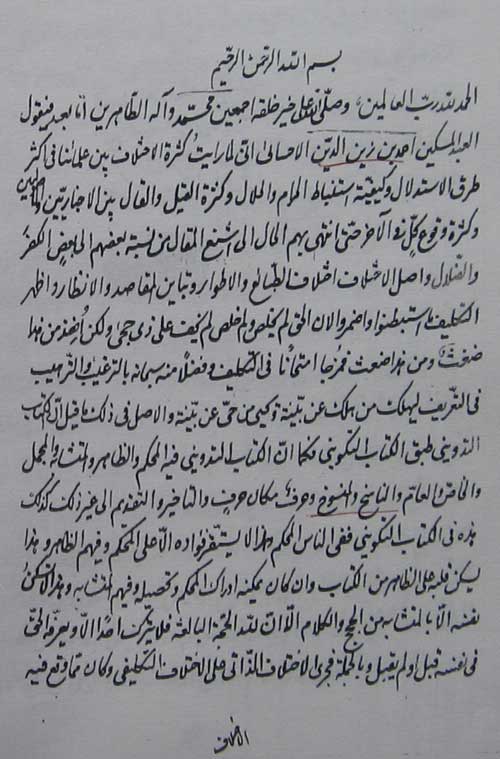 بسم الله الرحمن الرحيم
الحمد لله رب العالمين وصلى الله على خير خلقه اجمعين محمد وآله الطاهرين اما بعد فيقول
العبد المسكين احمد بن زين الدين الاحسائي اني لما رايت كثرة الاختلاف بين علمائنا في اكثر
طرق الاستدلال وكيفية استنباط الحرام والحلال وكثرة القيل والقال بين الاخباريين والمجتهدين
وكثرة وقوع كل في الآخر حتى انتهى بهم الحال الى اشنع المقال من نسبة بعضهم الى بعض الكفر
والضلال واصل الاختلاف اختلاف الطبائع والاطوار وتباين المقاصد والانظار واظهر
التكليف ما استبطنوا واضمروا لان الحق لم يخلص ولو اخلص لم يخف على ذي حجى ولكن اخذ من هذا
ضغث ومن هذا ضغث فمزجا امتحانا في التكليف وفضلا منه سبحانه بالترغيب والترهيب
في التعريف ليهلك من هلك عن بينة ويحيى من حي عن بينة والاصل في ذلك ما قيل ان الكتاب
التدويني طبق الكتاب التكويني فكما ان الكتاب التدويني فيه المحكم والظاهر والمتشابه والمجمل
والخاص والعام والناسخ والمنسوخ وحرف مكان حرف والتاخير والتقديم الى غير ذلك كذلك
هذه في الكتاب التكويني ففي الناس المحكم وهذا لا يستقر فؤاده الا على المحكم وفيهم الظاهر وهذا
يسكن قلبه على الظاهر من الكتاب وان كان يمكنه ادراك المحكم وتحصيله وفيهم المتشابه وهذا لا تسكن
نفسه الا بالمتشابه من الحجج والكلام الا ان لله الحجة البالغة فلا يترك احدا الا ويعرفه الحق
في نفسه قبل او لم يقبل وبالجملة فجرى الاختلاف الذاتي على الاختلاف التكليفي وكان مما وقع فيه
الاختلاف